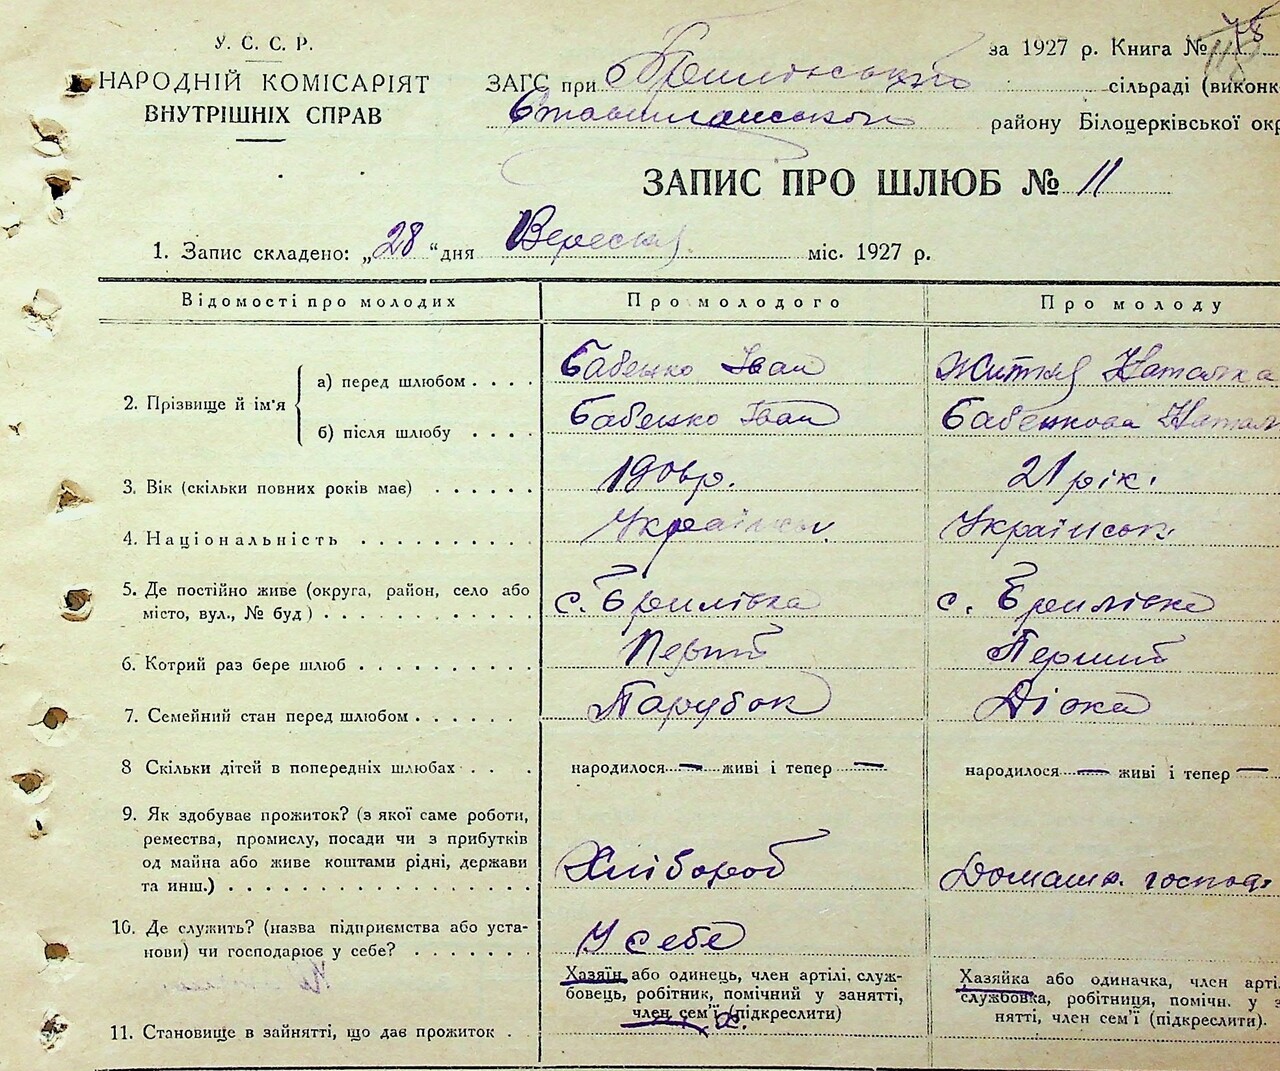 У. С. С. Р.
НАРОДНІЙ КОМІСАРІЯТ
ВНУТРІШНІХ СПРАВ
за 1927 р. Книга №
ЗАГС при сільраді (виконк
району Білоцерківської окр
ЗАПИС ПРО ШЛЮБ № 11
1. Запис складено: „28“ дня Вересня міс. 1927 р.
Відомості про молодих Про молодого Про молоду
2. Прізвище й ім'я
а) перед шлюбом Бабенко Іван Наталка
б) після шлюбу Бабенко Іван Бабенкова Натал
3. Вік (скільки повних років має) 21 рік.
4. Національність Українськ
5. Де постійно живе (округа, район, село або
місто, вул., № буд) с. Єрчлівка с. Єрчлівка
6. Котрий раз бере шлюб Перший
7. Семейний стан перед шлюбом Парубок Дівка
8 Скільки дітей в попередніх шлюбах народилося — живі і тепер — народилося — живі і тепер —
9. Як здобуває прожиток? (з якої саме роботи,
ремества, промислу, посади чи з прибутків
од майна або живе коштами рідні, держави
та инш.) Хлібороб Домашн. господ.
10. Де служить? (назва підприємства або уста-
нови) чи господарює у себе? У себе
11. Становище в зайнятті, що дає прожиток
Хазяїн або одинець, член артілі, служ-
бовець, робітник, помічний у занятті,
член сем'ї (підкреслити)
Хазяйка або одиначка, член арті
службовка, робітниця, помічн. у з
нятті, член сем'ї (підкреслити).